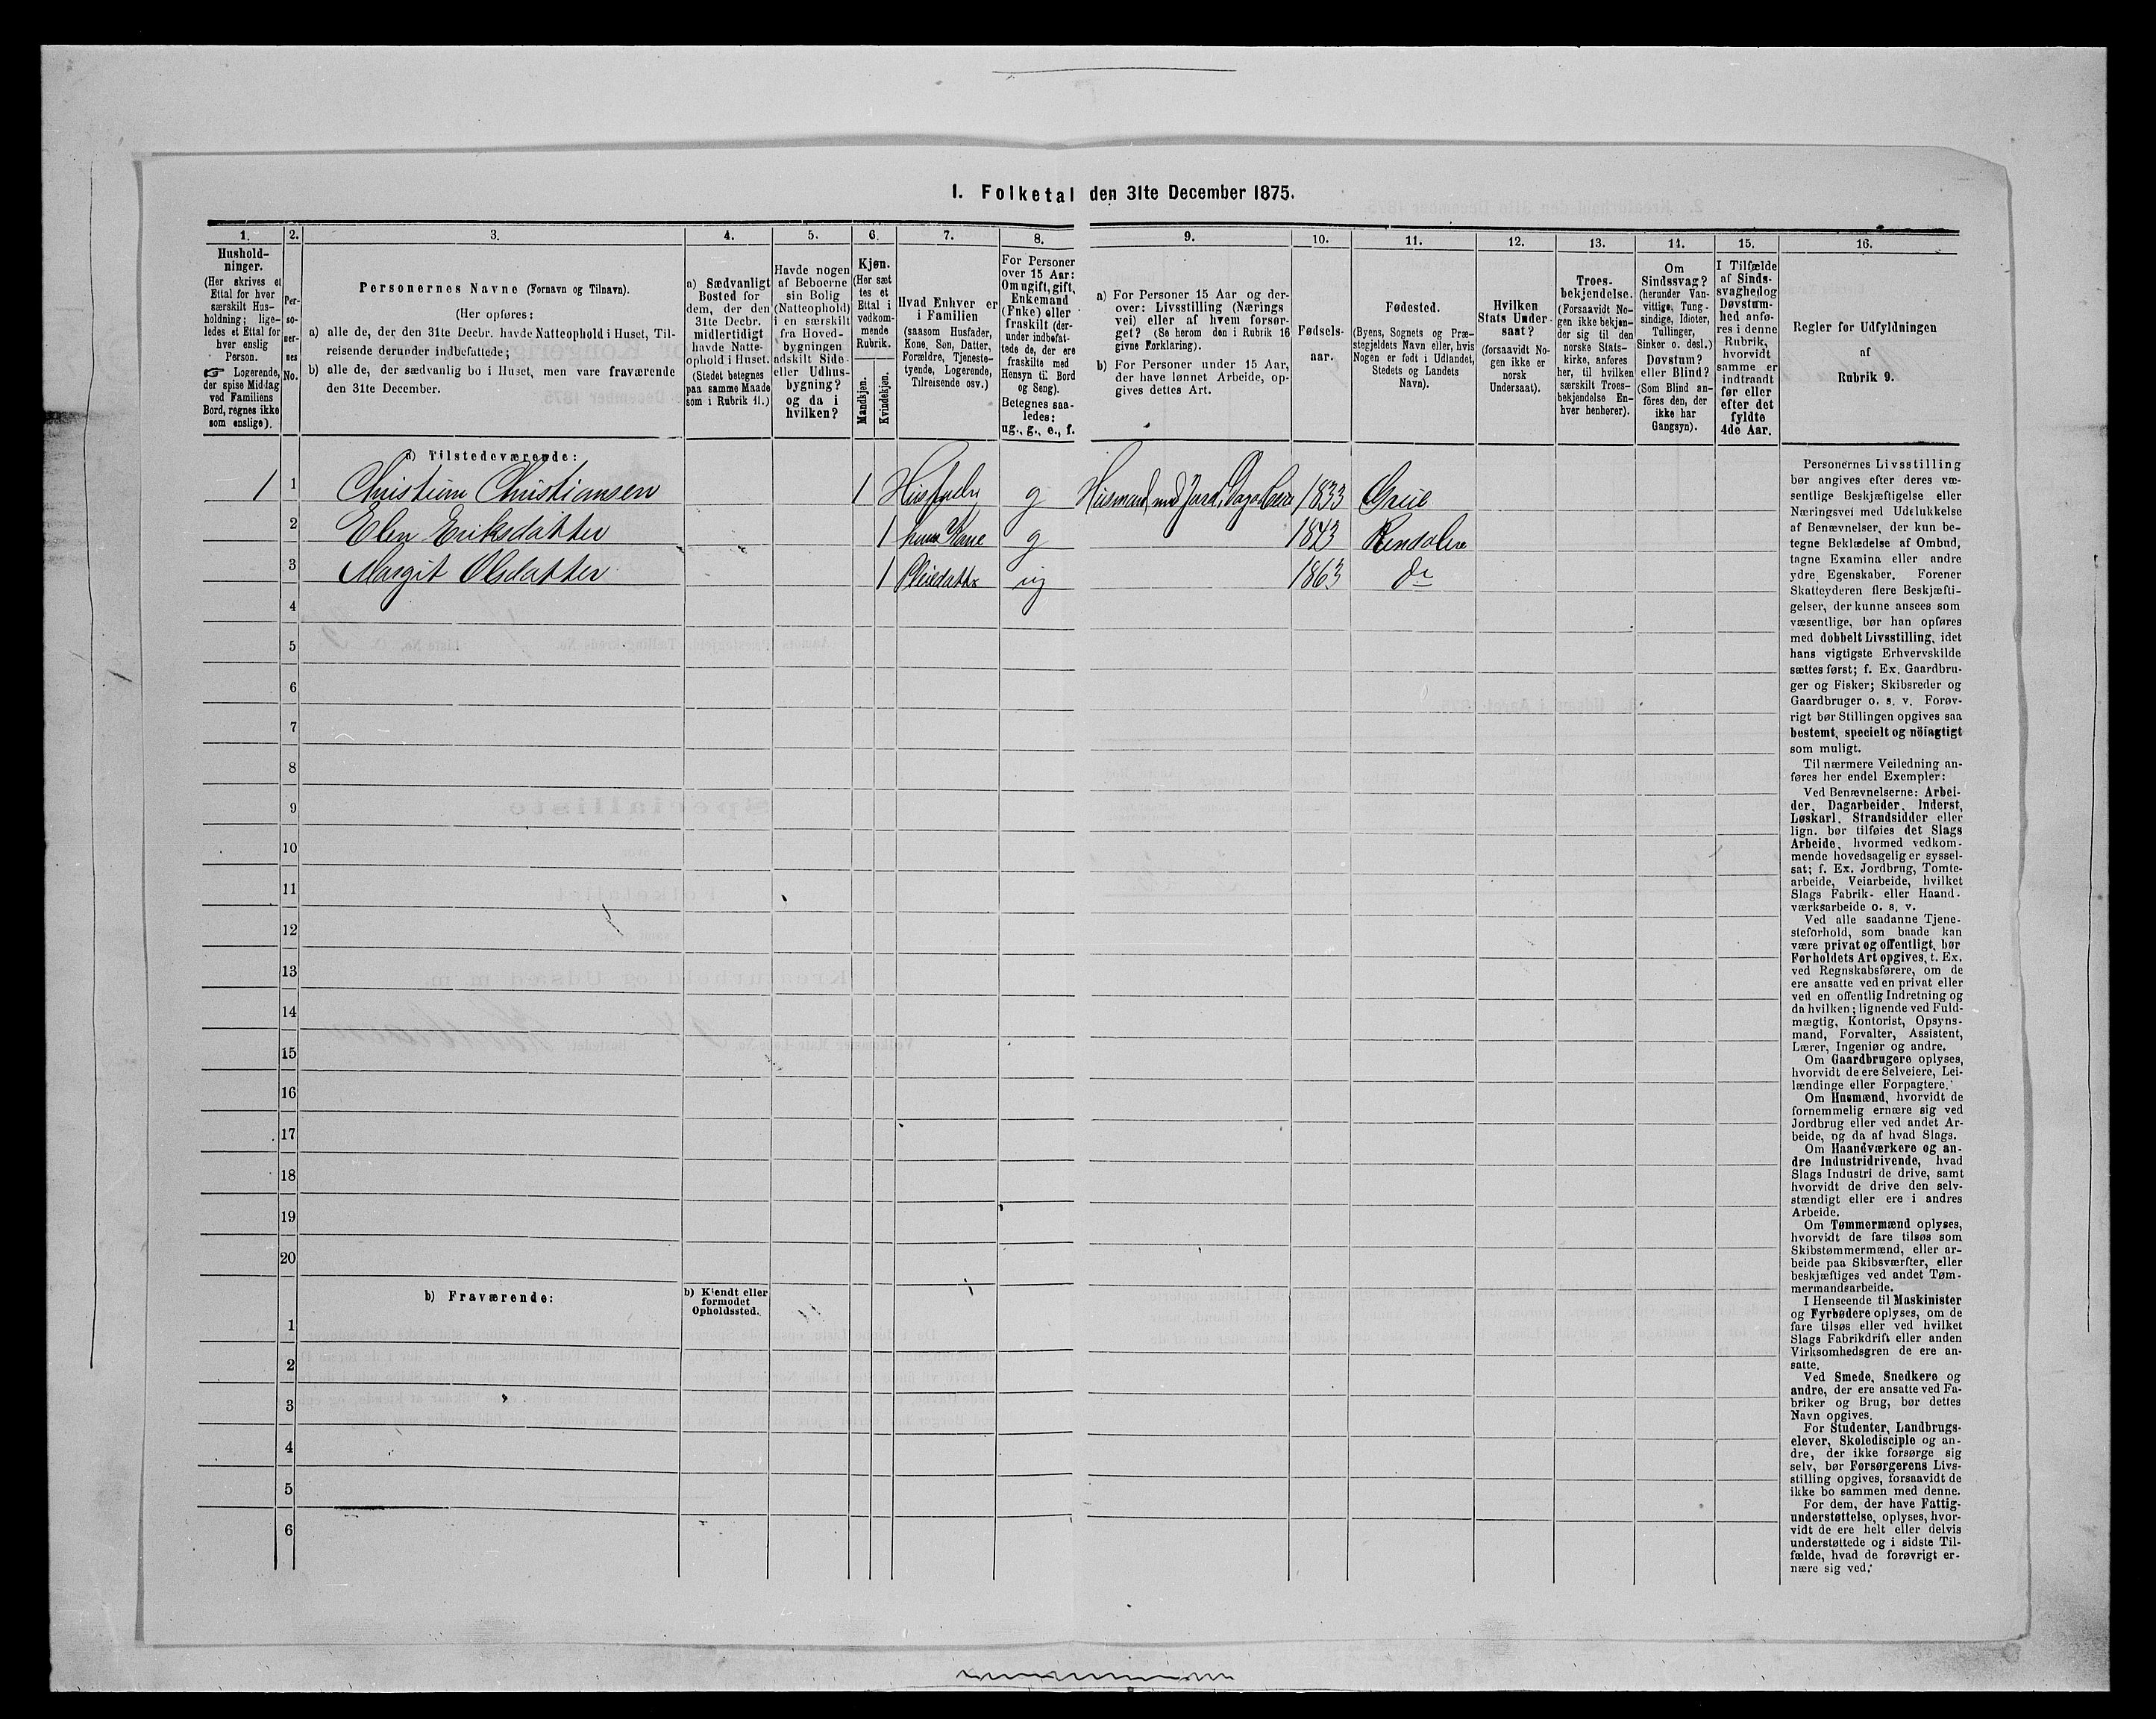 I. Folketal den 31te December 1875.
1. 2. 3. 4. 5. 6. 7. 8. 9. 10. 11. 12. 13. 14. 15. 16.
Hushold-
ninger.
(Her skrives et
Ettal for hver
særskilt Hus-
holdning; lige-
ledes et Ettal for
hver enslig
Person.
☞ Logerende,
der spise Middag
ved Familiens
Bord, regnes ikke
som enslige).
Per-
so-
ner-
nes
No.
Personernes Navne (Fornavn og Tilnavn).
(Her opføres:
a) alle de, der den 31te Decbr. havde Natteophold i Huset, Til-
reisende derunder indbefattede;
b) alle de, der sædvanlig bo i Huset, men vare fraværende
den 31te December.
a) Sædvanligt
Bosted for
dem, der den
31te Decbr.
midlertidigt
havde Natte-
ophold i Huset.
(Stedet betegnes
paa samme Maade
som i Rubrik 11.)
Havde nogen
af Beboerne
sin Bolig
(Natteophold)
i en særskilt
fra Hoved-
bygningen
adskilt Side-
eller Udhus-
bygning?
og da i
hvilken?
Kjøn.
(Her sæt
tes et
Ettal i
vedkom-
mende
Rubrik.
Mandkjøn.
Kvindekjøn.
Hvad Enhver er
i Familien
(saasom Husfader,
Kone, Søn, Datter,
Forældre, Tjeneste-
tyende, Logerende,
Tilreisende osv.)
For Personer
over 15 Aar:
Om ugift, gift,
Enkemand
(Enke) eller
fraskilt (der-
under indbefat-
tede de, der ere
fraskilte med
Hensyn til Bord
og Seng).
Betegnes saa-
ledes:
ug., g., e., f.
a) For Personer 15 Aar og der-
over: Livsstilling (Nærings
vei) eller af hvem forsør-
get? (Se herom den i Rubrik 16
givne Forklaring).
b) For Personer under 15 Aar,
der have lønnet Arbeide, op-
gives dettes Art.
Fødsels-
aar.
Fødested.
(Byens, Sognets og Præ-
stegjeldets Navn eller, hvis
Nogen er født i Udlandet,
Stedets og Landets
Navn).
Hvilken
Stats Under-
saat?
(forsaavidt No-
gen ikke er
norsk
Undersaat).
Troes-
bekjendelse.
(Forsaavidt No-
gen ikke bekjen-
der sig til den
norske Stats-
kirke, anføres
her, til hvilken
særskilt Troes-
bekjendelse En-
hver henhører).
Om
Sindssvag?
(herunder Van-
vittige, Tung-
sindige, Idioter,
Tullinger,
Sinker o. desl.)
Døvstum?
eller Blind?
(Som Blind an-
føres den, der
ikke har
Gangsyn).
I Tilfælde
af Sinds-
svaghed og
Døvstum-
hed anfø-
res i denne
Rubrik,
hvorvidt
samme er
indtraadt
før eller
efter det
fyldte
4de Aar.
Regler for Udfyldningen
af
Rubrik 9.
a) Tilstedeværende:
1 1 Christian Christiansen 1 Husfader g Husmand med Jord, 1833 Grue
2 Elen Eriksdatter 1 hans Kone g 1843 Rendalen
3 Margit Olsdatter 1 Pleiedatter ug 1863 do
4
5
6
7
8
9
10
11
12
13
14
15
16
17
18
19
20
b) Fraværende:
b) Kjendt eller
formodet
Opholdssted.
1
2
3
4
5
6
Personernes Livsstilling
bør angives efter deres væ-
sentlige Beskjæftigelse eller
Næringsvei med Udelukkelse
af Benævnelser, der kun be-
tegne Beklædelse af Ombud,
tagne Examina eller andre
ydre Egenskaber. Forener
Skatteyderen flere Beskjæfti-
gelser, der kunne ansees som
væsentlige, bør han opføres
med dobbelt Livsstilling, idet
hans vigtigste Erhvervskilde
sættes først; f. Ex. Gaardbru-
ger og Fisker; Skibsreder og
Gaardbruger o. s. v. Forøv-
rigt bør Stillingen opgives saa
bestemt, specielt og nöiagtigt
som muligt.
Til nærmere Veiledning an-
føres her endel Exempler:
Ved Benævnelserne: Arbei-
der, Dagarbeider, Inderst,
Løskarl, Strandsidder eller
lign. bør tilføies det Slags
Arbeide, hvormed vedkom-
mende hovedsagelig er syssel-
sat; f. Ex. Jordbrug, Tomte-
arbeide, Veiarbeide, hvilket
Slags Fabrik- eller Haand-
værksarbeide o. s. v.
Ved alle saadanne Tjene-
steforhold, som baade kan
være privat og offentligt, bør
Forholdets Art opgives, t. Ex.
ved Regnskabsførere, om de
ere ansatte ved en privat eller
ved en offentlig Indretning og
da hvilken; lignende ved Fuld-
mægtig, Kontorist, Opsyns-
mand, Forvalter, Assistent,
Lærer, Ingeniør og andre.
Om Gaardbrugere oplyses,
hvorvidt de ere Selveiere, Lei-
lændinge eller Forpagtere.
Om Husmænd, hvorvidt de
fornemmelig ernære sig ved
Jordbrug eller ved andet Ar-
beide, og da af hvad Slags.
Om Haandværkere og an-
dre Industridrivende, hvad
Slags Industri de drive, samt
hvorvidt de drive den selv-
stændigt eller ere i andres
Arbeide.
Om Tømmermænd oplyses,
hvorvidt de fare tilsøs som
Skibstømmermænd, eller ar-
beide paa Skibsværfter, eller
beskjæftiges ved andet Tøm-
mermandsarbeide.
I Henseende til Maskinister
og Fyrbødere oplyses, om de
fare tilsøs eller ved hvilket
Slags Fabrikdrift eller anden
Virksomhedsgren de ere an-
satte.
Ved Smede, Snedkere og
andre, der ere ansatte ved Fa-
briker og Brug, bør dettes
Navn opgives.
For Studenter, Landbrugs-
elever, Skoledisciple og an-
dre, der ikke forsørge sig
selv, bør Forsørgerens Livs-
stilling opgives, forsaavidt de
ikke bo sammen med denne.
For dem, der have Fattig-
understøttelse, oplyses, hvor-
vidt de ere helt eller delvis
understøttede og i sidste Til-
fælde, hvad de forøvrigt er-
nære sig ved.